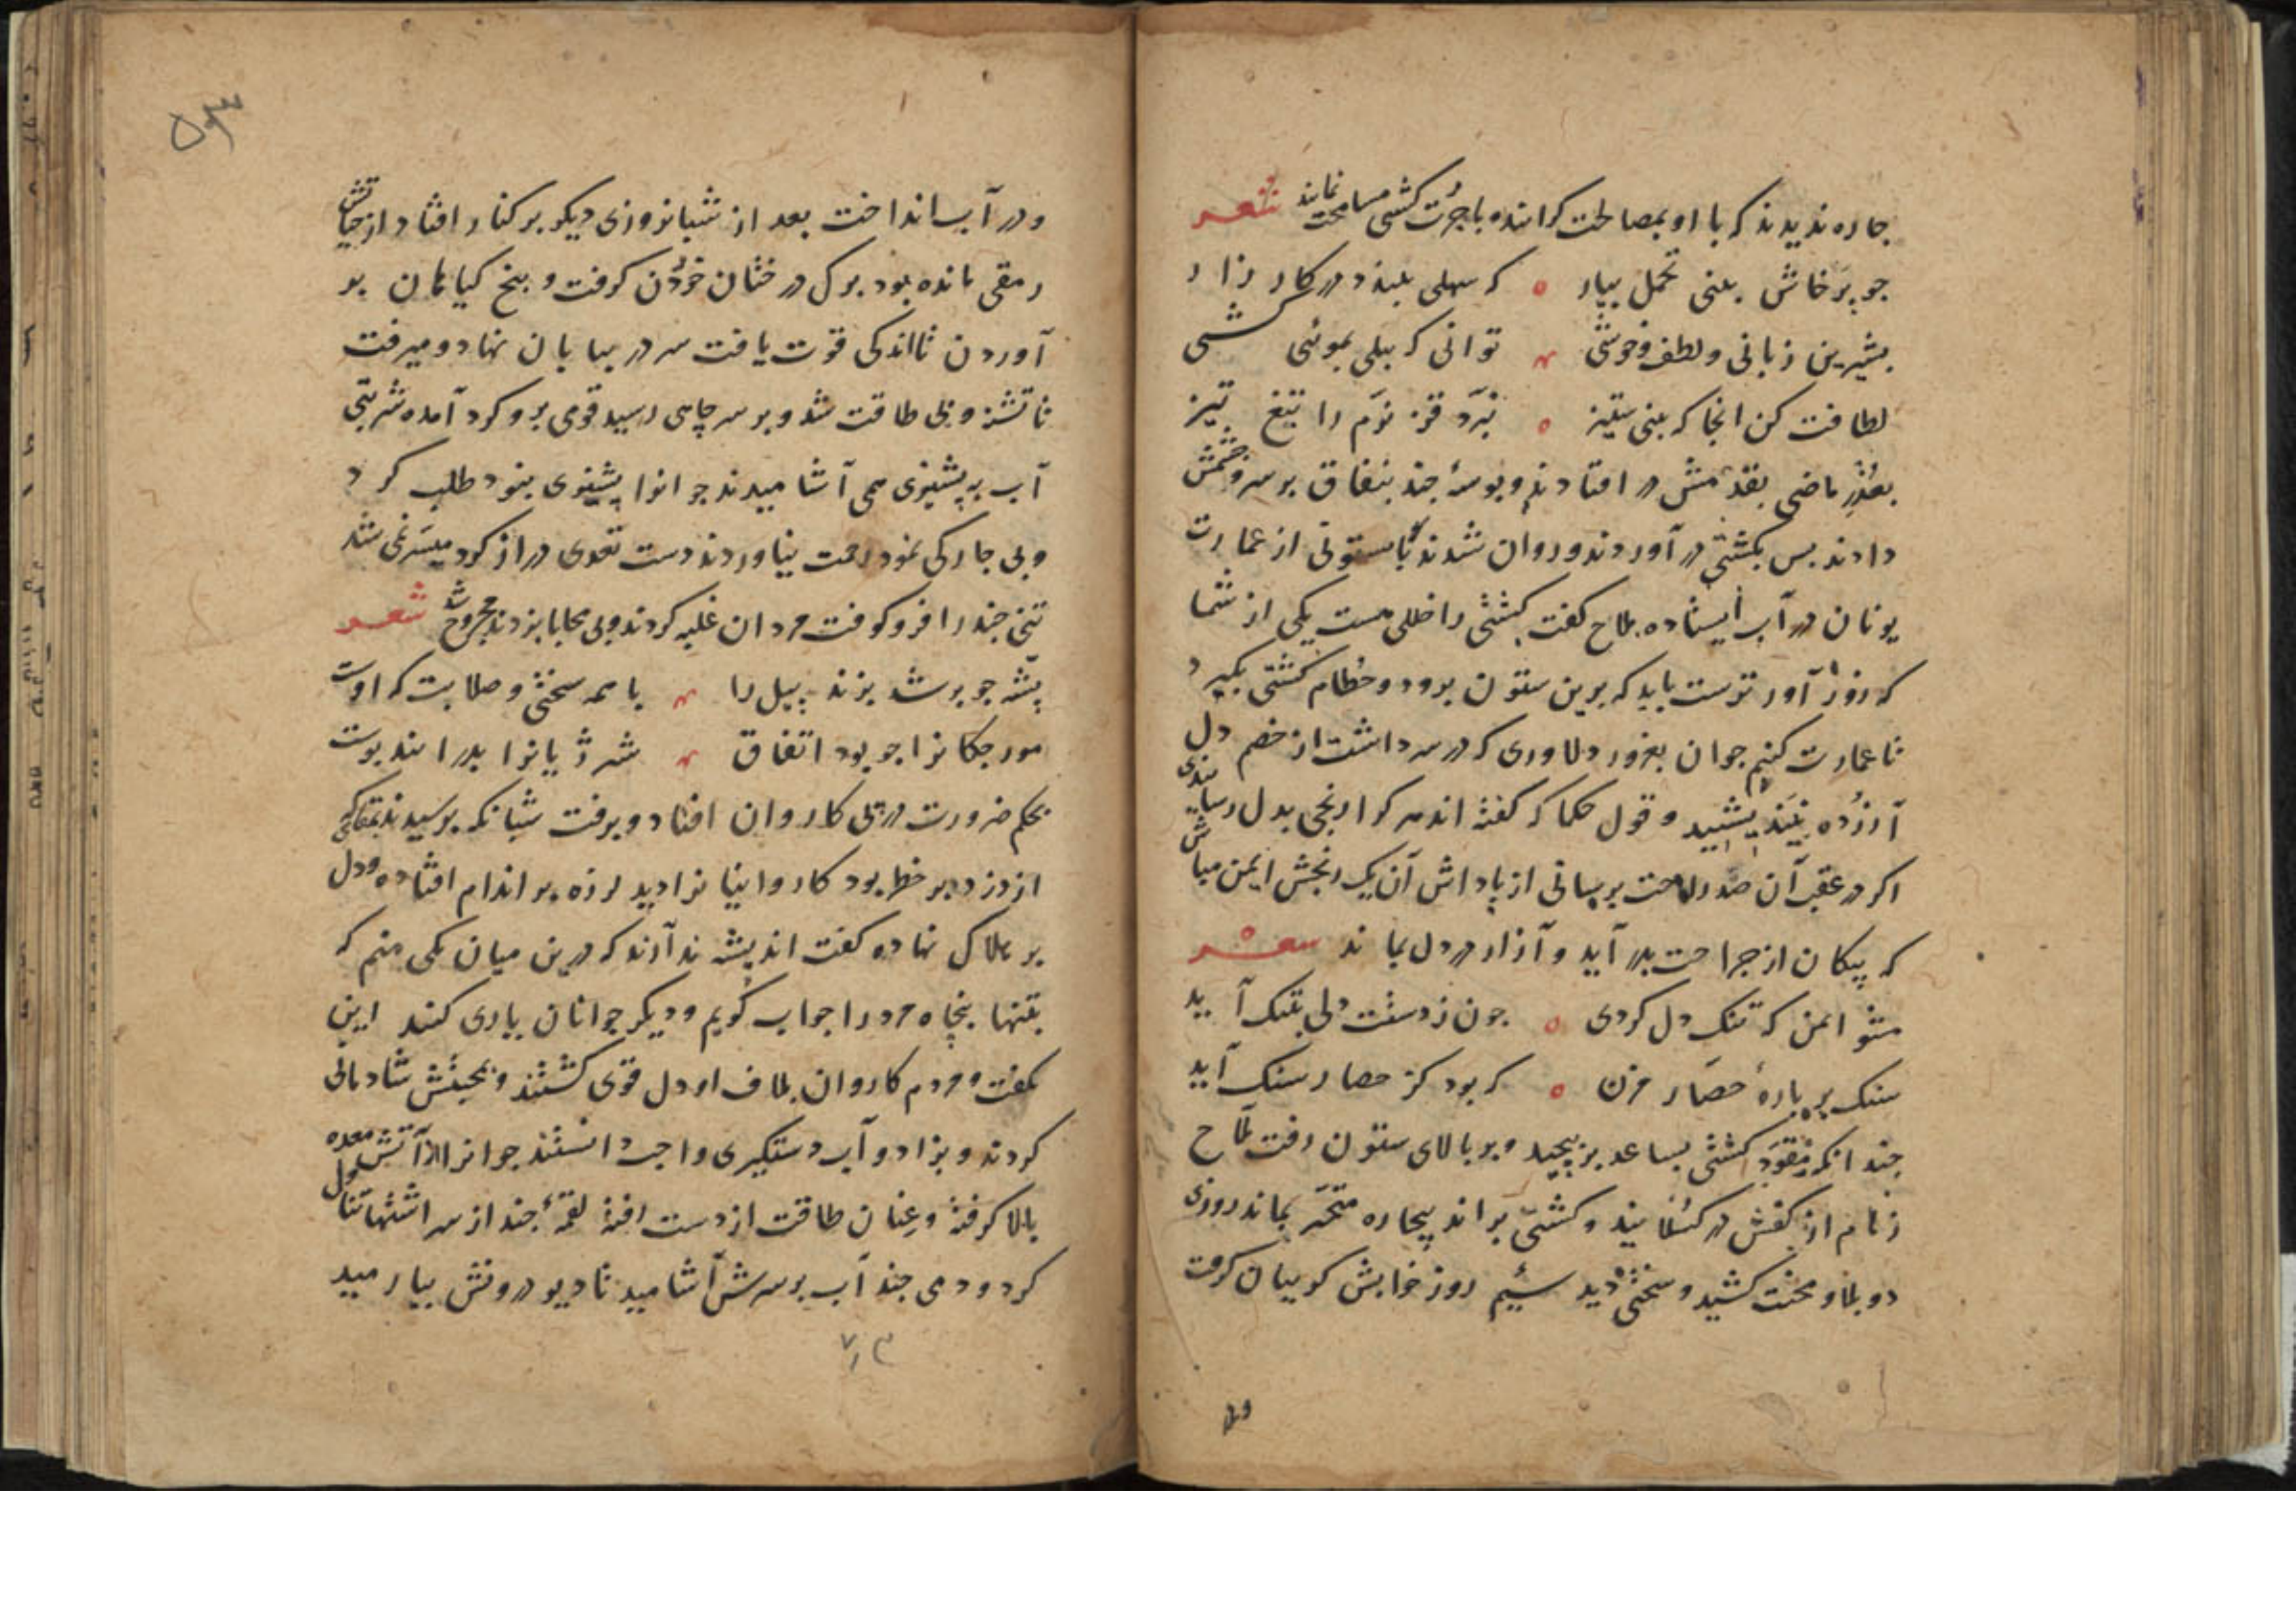 جاره ندیدند که با او بمصالحت کرایند و باجرت کشتی مسامحت نمایند شعر
جو پرخاش بینی تحمل بیار ه که سهلی ببندد در کار زار
بشیرین زبانی و لطف و خوشی توانی که پیلی بموئی کشی
لطافت کن انجا که بینی ستیز ه نبرد قز نرم را تیغ تیز
بعذر ماضی بقدمش در افتادند و بوسهٔ جند بنفاق بر سر و چشمش
دادند بس بکشتی در آوردند و روان شدند تا بستونی از عمارت
یونان در آب ایستاده ملاح کفت کشتی را خللی هست یکی از شما
که زور آورترست باید که برین ستون برود و خطام کشتی بکیرد
تا عمارت کنیم جوان بغرور دلاوری که در سر داشت از خصم دل
آزرده نیندیشید و قول حکما که کفته اند هر کرا رنجی بدل رسانیدی
اکر در عقب آن صد راحت برسانی از پاداش آن یک رنجش ایمن مباش
که پیکان از جراحت بدر آید و آزار در دل بماند شعر
مشو ایمن که تنک دل کردی ه جون ز دستت دلی بتنک آید
سنک بر بارهٔ حصار مزن ه که بود کز حصار سنک آید
جندانکه مقود کشتی بساعد بر پیچید و بر بالای ستون رفت ملاح
زمام از کفش در کسلانید و کشتی براند بیچاره متحیر بماند روزی
دو بلا و محنت کشید و سختی دید سیم روز خوابش کریبان کرفت
ودر
۵۳
و در آب انداخت بعد از شبانروزی دیکر بر کنار افتاد از حیاتش
رمقی مانده بود برک درختان خوردن کرفت و بیخ کیاهان بر
آوردن تا اندکی قوت یافت سر در بیابان نهاد و میرفت
تا تشنه و بی طاقت شد و بر سر چاهی رسید قومی برو کرد آمده شربتی
آب به پشیزی همی آشامیدند جوانرا پشیزی نبود طلب کرد
و بی جارکی نمود رحمت نیاوردند دست تعدی دراز کرد میسر نمی شد
تنی جند را فرو کوفت مردان غلبه کردند و بی محابا بزدند مجروح شد شعر
پشه جو پر شد بزند پیل را با همه سختی و صلابت که اوست
مورجکانرا جو بود اتفاق شیر ژیانرا بدرانند پوست
بحکم ضرورت در پی کاروان افتاد و برفت شبانکه برسیدند بمقامی که
از دزد پر خطر بود کاروانیانرا دید لرزه بر اندام افتاده و دل
بر هلاک نهاده کفت اندیشه ندارند که درین میان یکی منم که
بتنها پنجاه مرد را جواب کویم و دیکر جوانان یاری کنند این
بکفت و مردم کاروان بلاف او دل قوی کشتند و بصحبتش شادمانی
کردند و بزاد و آب دستکیری واجب دانستند جوانرا آتش معده
بالا کرفته و عنان طاقت از دست رفته لقمهٔ جند از سر اشتها تناول
کرد و دمی جند آب بر سرش آشامید تا دیو درونش بیارمید